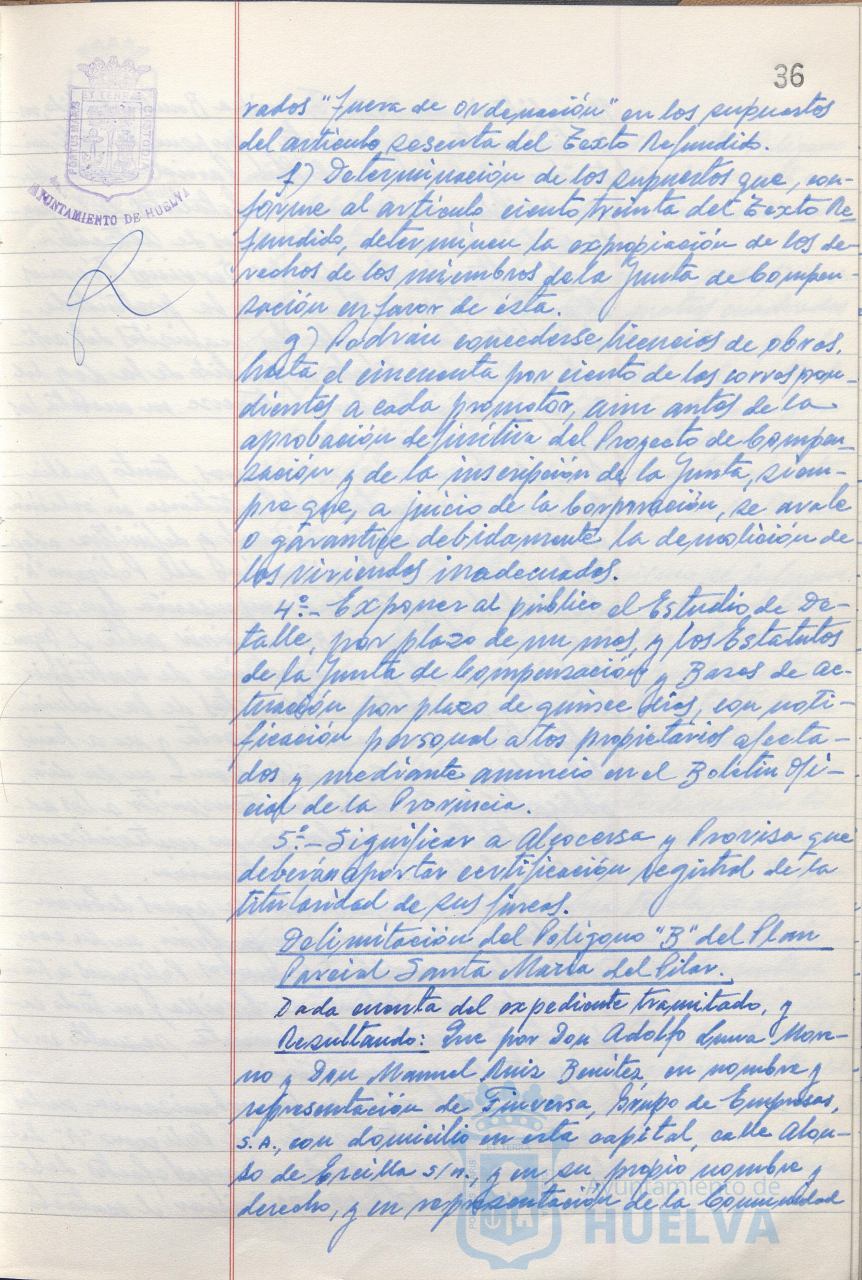 36
PORTUS MARIS
ET TERRAE
CUSTODIA
AYUNTAMIENTO DE HUELVA
rados "fuera de ordenación" en los supuestos
del artículo sesenta del Texto Refundido.
f) Determinación de los supuestos que, con-
forme al artículo ciento treinta del Texto Re-
fundido, determinen la expropiación de los de-
rechos de los miembros de la Junta de Compen-
sación en favor de ésta.
g) Podrán concederse licencias de obras,
hasta el cincuenta por ciento de las correspon-
dientes a cada promotor, aún antes de la
aprobación definitiva del Proyecto de Compen-
sación y de la inscripción de la Junta, siem-
pre que, a juicio de la Corporación, se avale
o garantice debidamente la demolición de
las viviendas inadecuadas.
4º.- Exponer al público el Estudio de De-
talle, por plazo de un mes, y los Estatutos
de la Junta de Compensación y Bases de Ac-
tuación por plazo de quince días, con noti-
ficación personal a los propietarios afecta-
dos y mediante anuncio en el Boletín Ofi-
cial de la Provincia.
5º.- Significar a Algocersa y Provisa que
deberán aportar certificación registral de la
titularidad de sus fincas.
Delimitación del Polígono "B" del Plan
Parcial Santa María del Pilar.
Dada cuenta del expediente tramitado, y
Resultando: Que por Don Adolfo Luna More-
no y Don Manuel Ruiz Benítez en nombre y
representación de Finversa, Grupo de Empresas,
S.A., con domicilio en esta capital, calle Alon-
so de Ercilla s/n., y en su propio nombre y
derecho, y en representación de la Comunidad
Ayuntamiento de
HUELVA